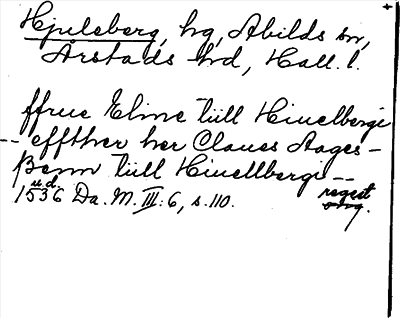 Hjuleberg, hg, Abilds sn,
Årstads hd, Hall. l.
ffrue Eline tiill Hiuelbergi
-- effther her Claues Aages-
ßenn tiill Hiuellbergi --
u.d.
1536 Da. M. III: 6, s. 110.
regest
orig.